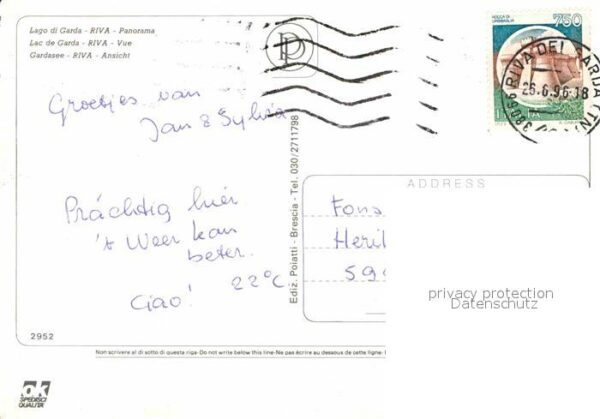 Lago di Garda - RIVA - Panorama
Lac de Garda - RIVA - Vue
Gardasee - RIVA - Ansicht
P
ROCCA DI URBISAGLIA
750
38066 RIVA DEL GARDA (TN)
26.6.96.18
Groetjes van
Jan & Sylvia
Práchtig hier
't Weer kan
beter.
22°C
Ciao!
Ediz. Poiatti - Brescia - Tel. 030/2711798
ADDRESS
Fons
Heril
599
privacy protection
Datenschutz
2952
Non scrivere al di sotto di questa riga-Do not write below this line-Ne pas écrire au dessous de cette ligne-
ok
SPEDISCI
QUALITÀ